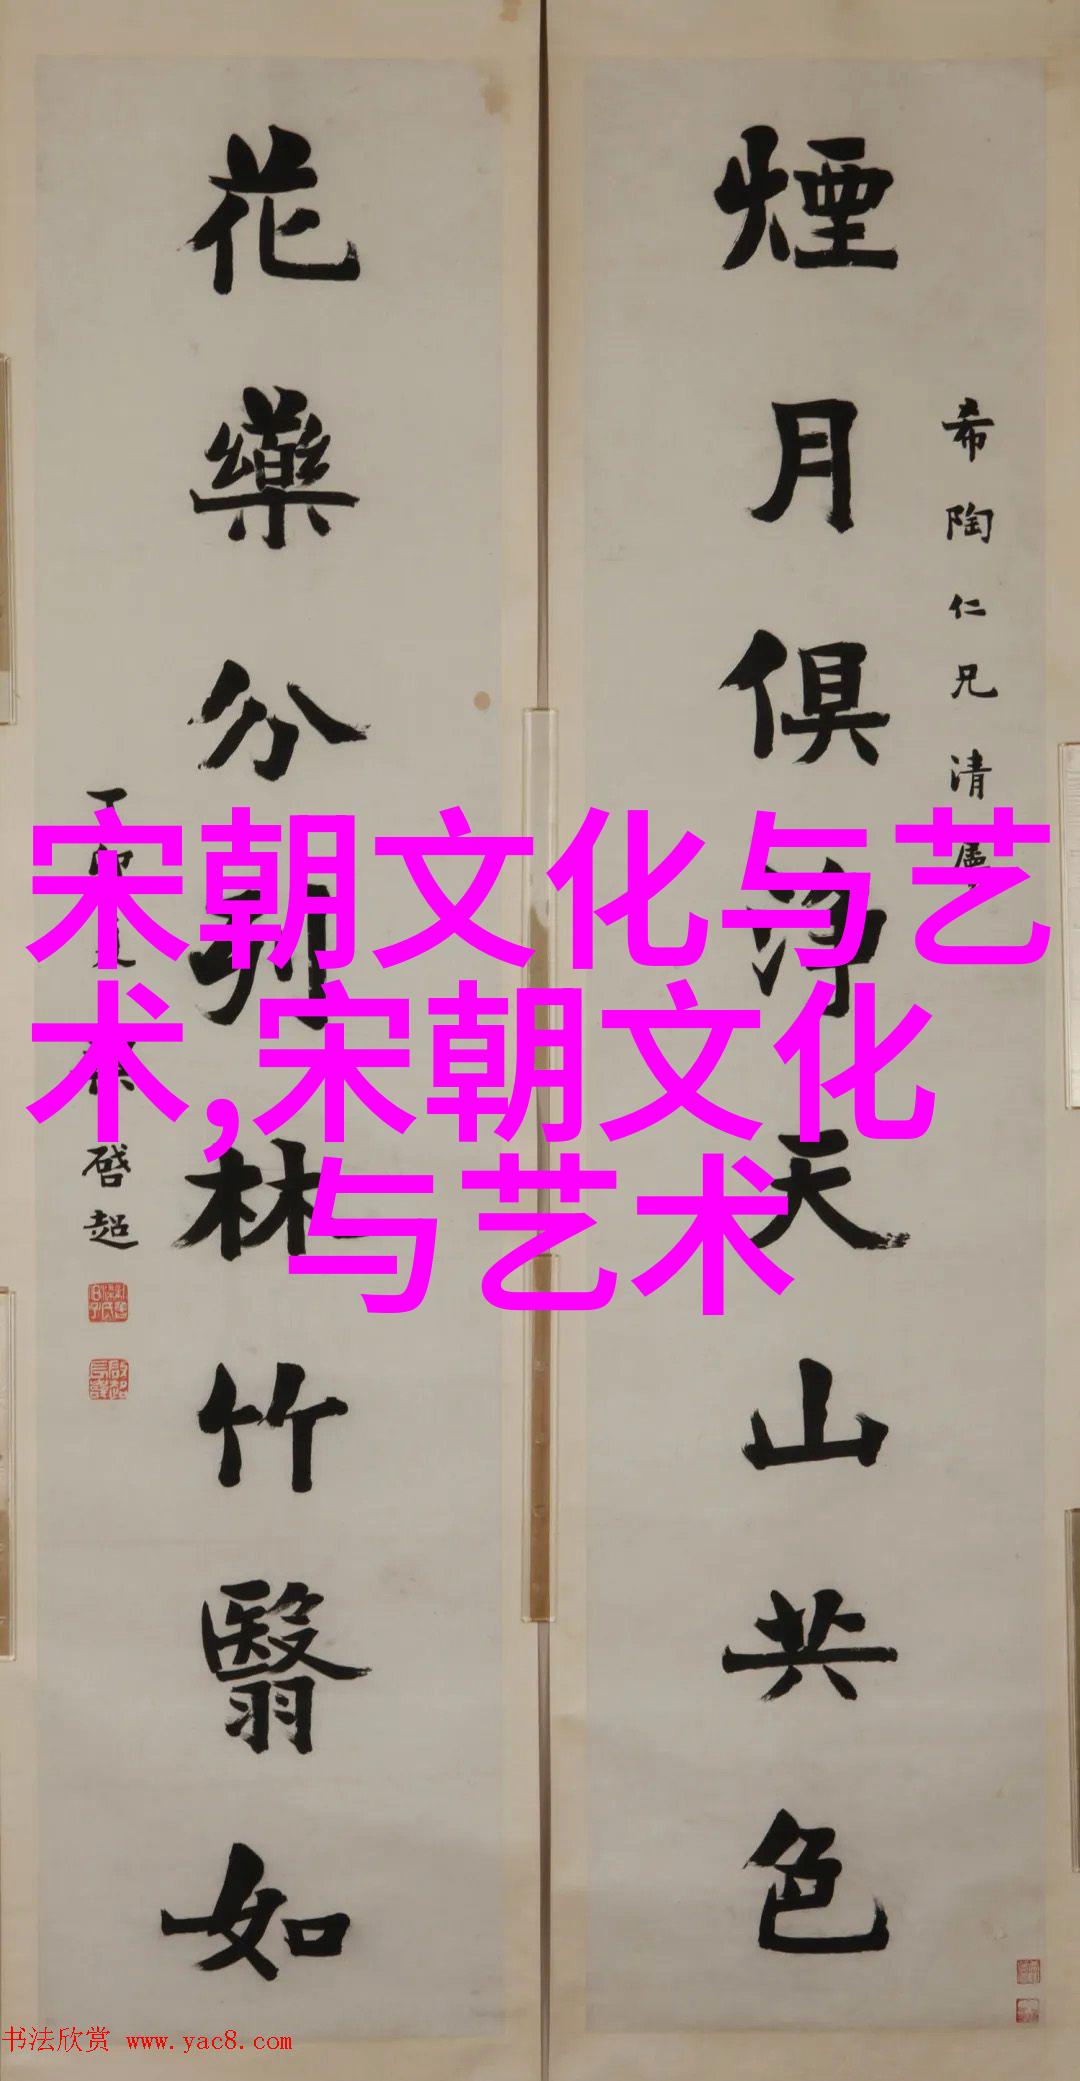 煙月俱淨天山共色
希陶仁兄清屬
花藥分列林竹翳如
丁卯夏 啓超
宋朝文化与艺
术,宋朝文化
与艺术
书法欣赏 www.yac8.com